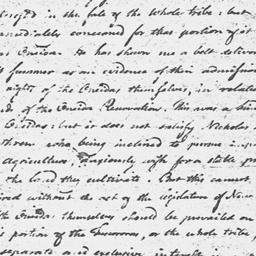 in the sale of the whole tribe; but
concerned for that portion of it
Oneida. He has shown me a belt deliver
as an evidence of their admission
rights of the Oneidas themselves, in relation
of the Oneida Reservation. This was a
Oneidas: but it does not satisfy Nicholas
them who, being inclined to pursue
Agriculture, anxiously wish for a stable
the land they cultivate. But this cannot
without the act of the legislature of New
Oneidas themselves should be prevailed on
portion of the Tuscaroras, or the whole tribe,
separate and exclusive interest in